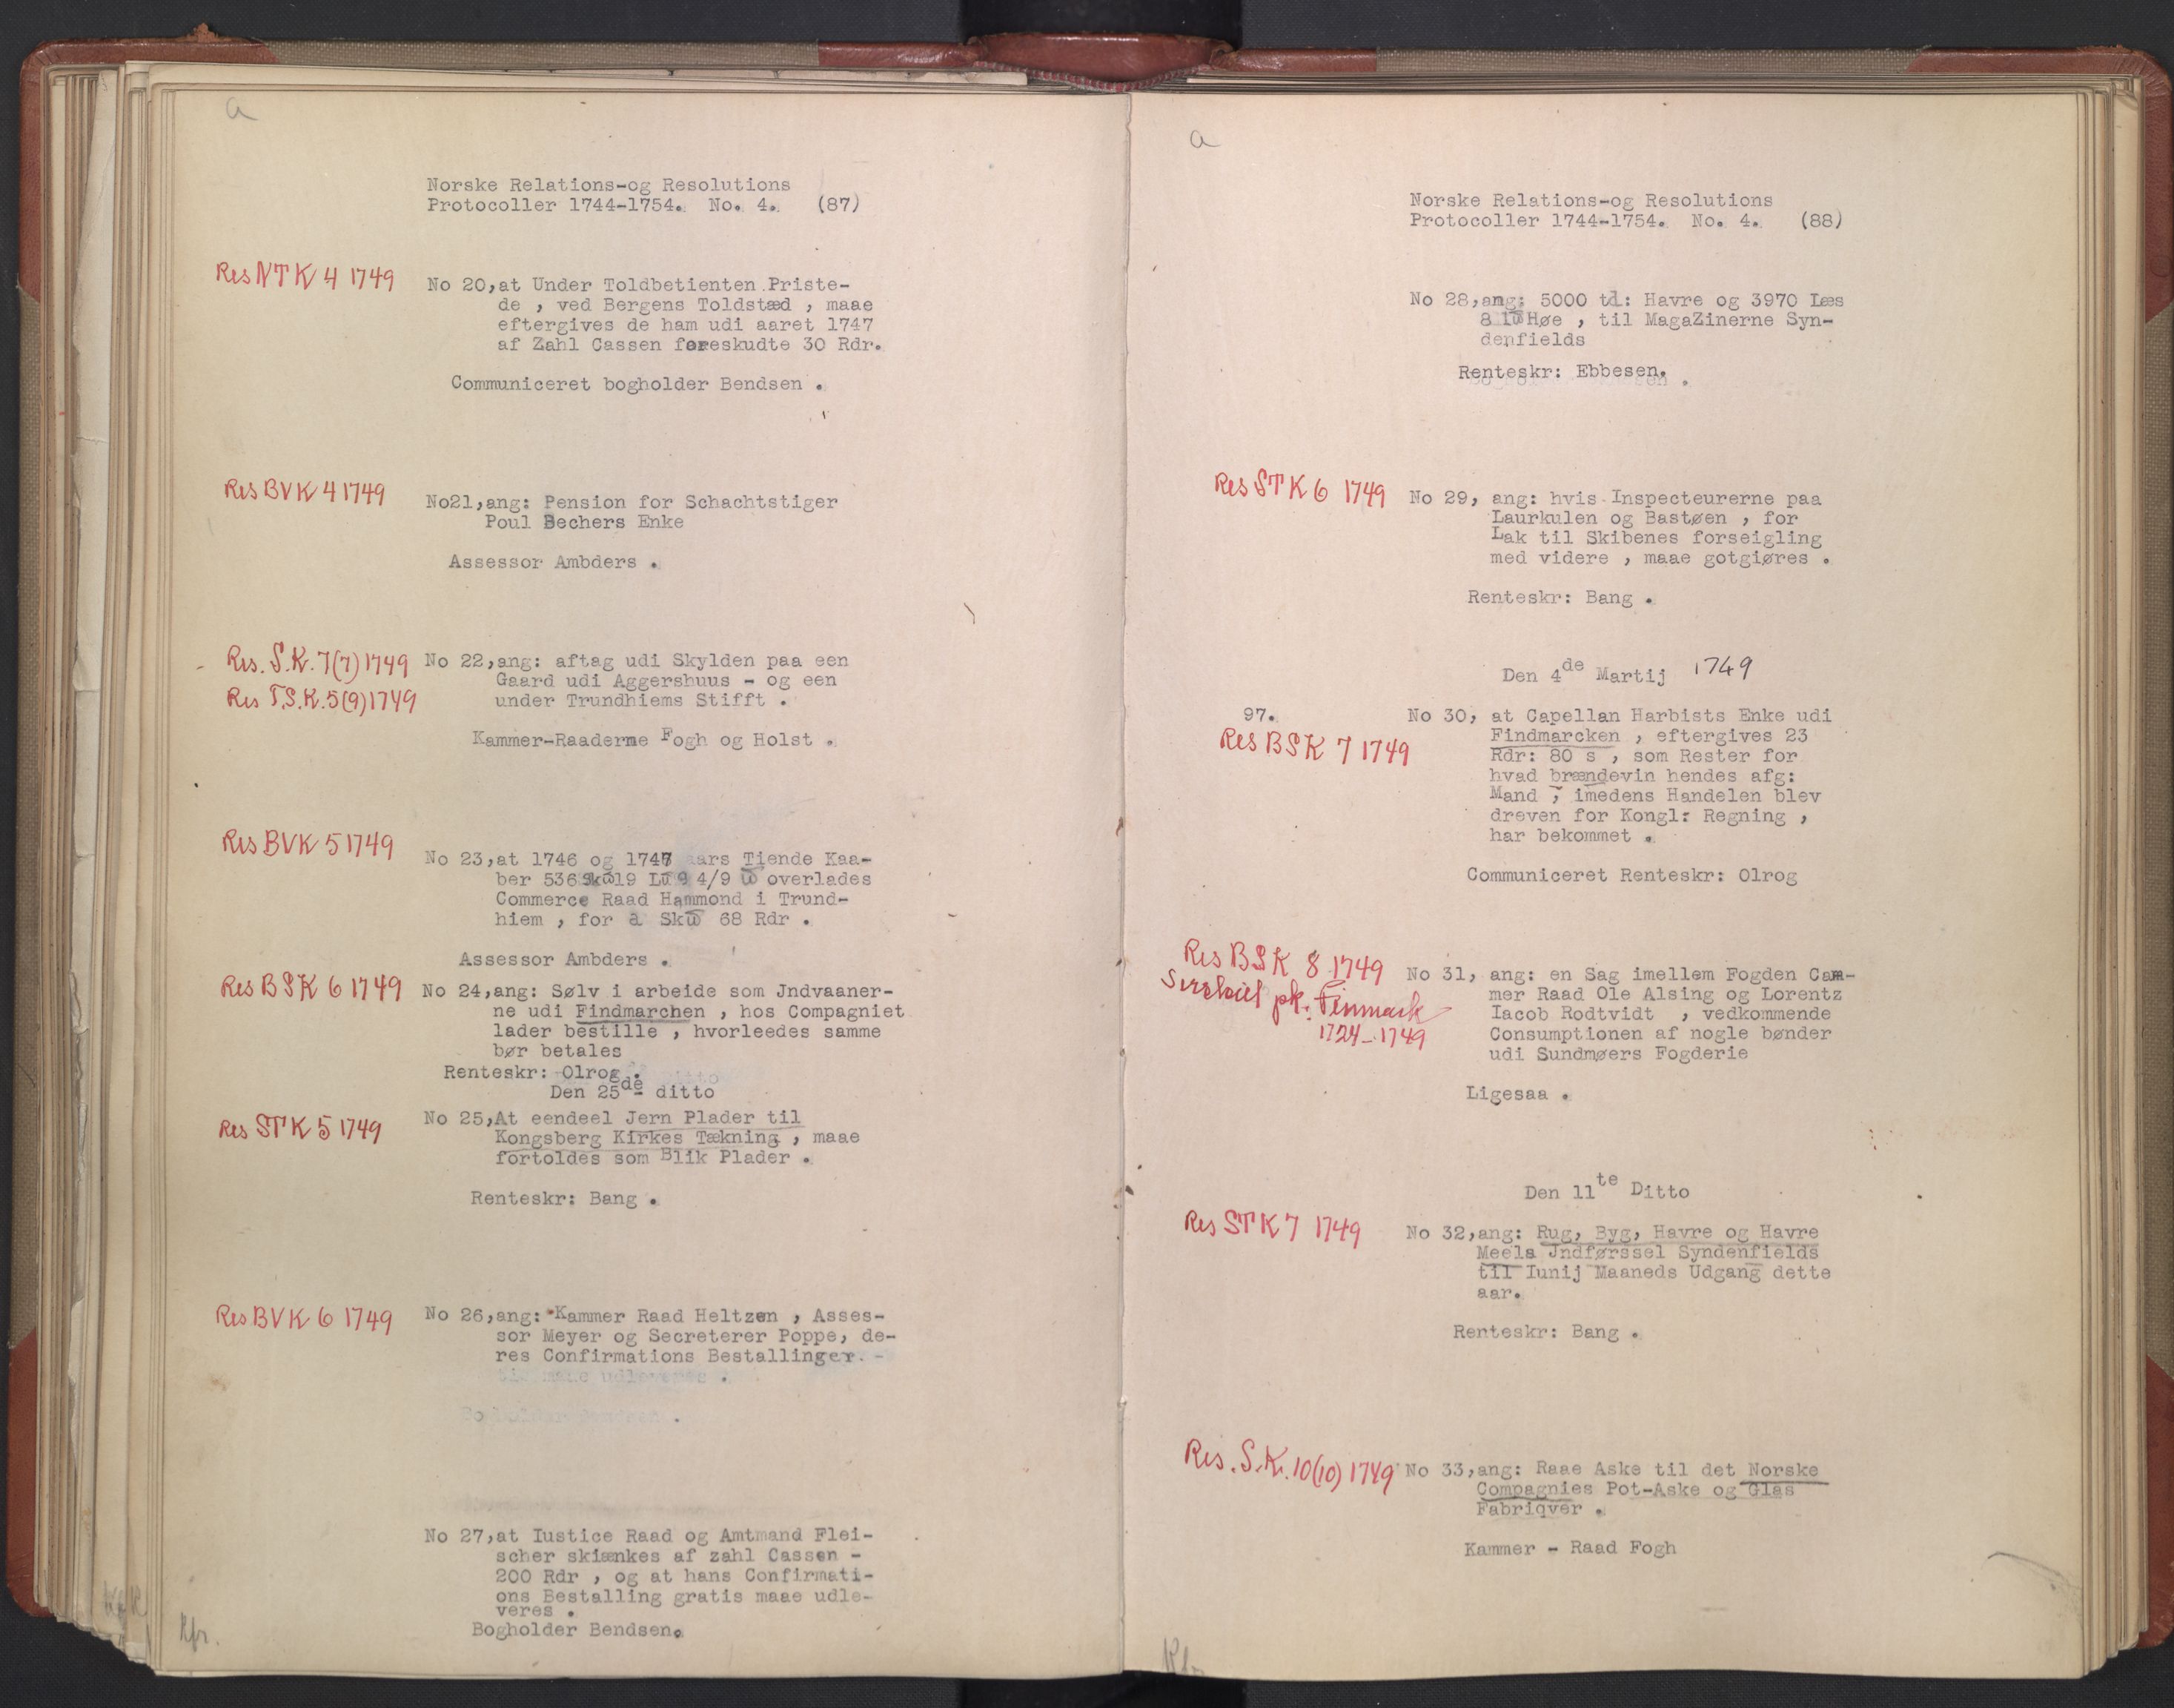 a
Norske Relations-og Resolutions
Protocoller 1744-1754. No. 4. (87)
Res NTK 4 1749
No 20,at Under Toldbetienten Priste-
de , ved Bergens Toldstæd , maae
eftergives de ham udi aaret 1747
af Zahl Cassen foreskudte 30 Rdr.
Communiceret bogholder Bendsen .
Res BVK 4 1749
No21,ang: Pension for Schachtstiger
Poul Bechers Enke
Assessor Ambders .
Res. S.K. 7(7) 1749
Res T.S.K. 5(9) 1749
No 22,ang: aftag udi Skylden paa een
Gaard udi Aggershuus - og een
under Trundhiems Stifft .
Kammer-Raaderne Fogh og Holst .
Res BVK 5 1749
No 23,at 1746 og 1747 aars Tiende Kaa-
ber 536 Sk℔ 19 L℔ 9 4/9 ℔ overlades
Commerce Raad Hammond i Trund-
hiem , for a Sk℔ 68 Rdr .
Assessor Ambders .
Res BSK 6 1749
No 24,ang: Sølv i arbeide som Jndvaaner-
ne udi Findmarchen , hos Compagniet
lader bestille , hvorleedes samme
bør betales
Renteskr: Olrog .
Den 25de ditto
Res STK 5 1749
No 25,At eendeel Jern Plader til
Kongsberg Kirkes Tækning , maae
fortoldes som Blik Plader .
Renteskr: Bang .
Res BVK 6 1749
No 26,ang: Kammer Raad Heltzen , Asses-
sor Meyer og Secreterer Poppe, de-
res Confirmations Bestallinger. -
No 27,at Iustice Raad og Amtmand Flei-
scher skiænkes af zahl Cassen -
200 Rdr , og at hans Confirmati-
ons Bestalling gratis maae udle-
veres .
Bogholder Bendsen.
Kfr.
a
Norske Relations-og Resolutions
Protocoller 1744-1754. No. 4. (88)
No 28,ang: 5000 td: Havre og 3970 Læs
8 l℔ Høe , til MagaZinerne Syn-
denfields
Renteskr: Ebbesen.
Res STK 6 1749
No 29, ang: hvis Inspecteurerne paa
Laurkulen og Bastøen , for
Lak til Skibenes forseigling
med videre , maae gotgiøres .
Renteskr: Bang .
Den 4de Martij 1749
97.
Res BSK 7 1749
No 30, at Capellan Harbists Enke udi
Findmarcken , eftergives 23
Rdr: 80 s , som Rester for
hvad brændevin hendes afg:
Mand , imedens Handelen blev
dreven for Kongl: Regning ,
har bekommet .
Communiceret Renteskr: Olrog
Res BSK 8 1749
pk. Finmark
1724-1749
No 31, ang: en Sag imellem Fogden Cam-
mer Raad Ole Alsing og Lorentz
Iacob Rodtvidt , vedkommende
Consumptionen af nogle bønder
udi Sundmøers Fogderie
Ligesaa .
Den 11te Ditto
Res STK 7 1749
No 32,ang: Rug, Byg, Havre og Havre
Meels Jndførssel Syndenfields
til Iunij Maaneds Udgang dette
aar.
Renteskr: Bang .
Res. S.K. 10(10) 1749
No 33,ang: Raae Aske til det Norske
Compagnies Pot-Aske og Glas
Fabriqver .
Kammer - Raad Fogh